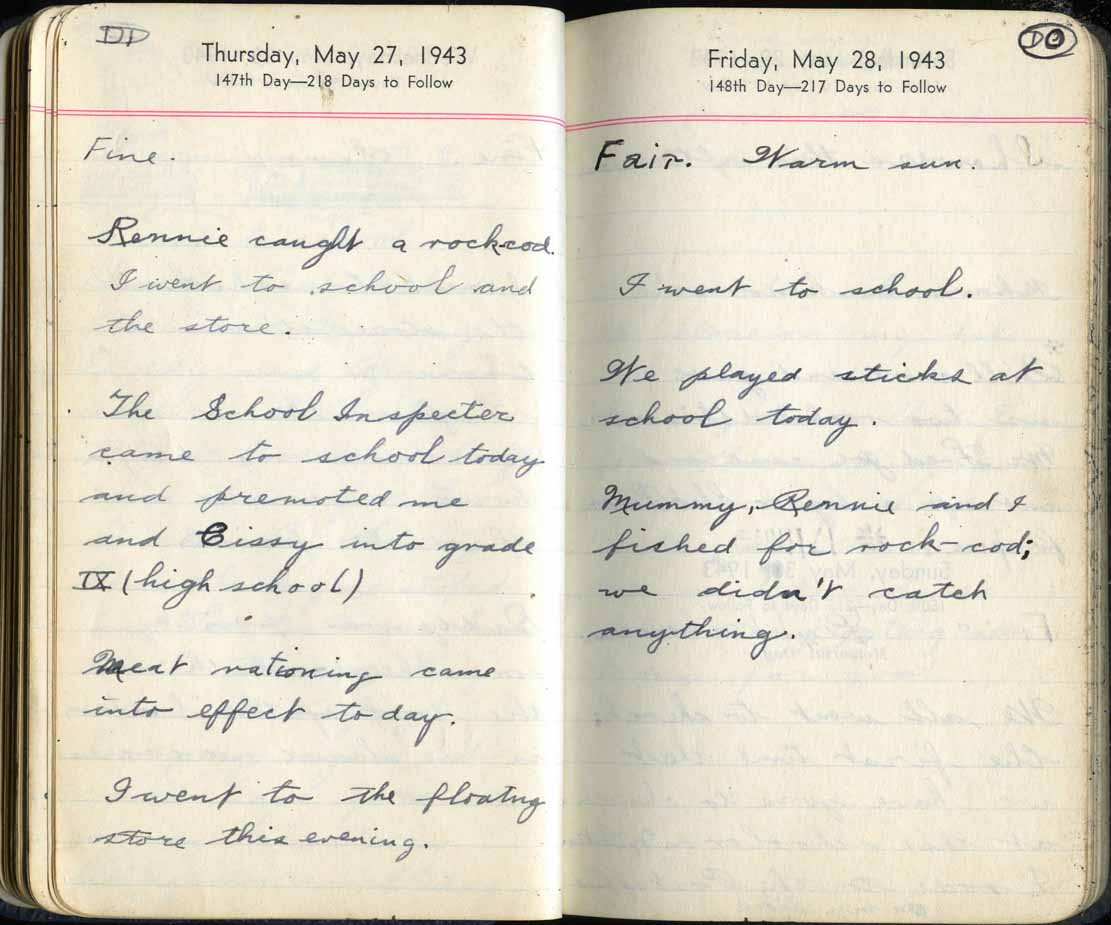 Thursday, May 27, 1943
147th Day—218 Days to Follow
Fine.
Rennie caught a rock-cod.
I went to school and
the store.
The School Inspecter
came to school today
and premoted me
and Cissy into grade
IX (high school)
Meat rationing came
into effect today.
I went to the floatng
store this evening.
DO
Friday, May 28, 1943
148th Day—217 Days to Follow
Fair. Warm sun.
I went to school.
We played sticks at
school today.
Mummy, Rennie and I
fished for rock-cod;
we didn't catch
anything.